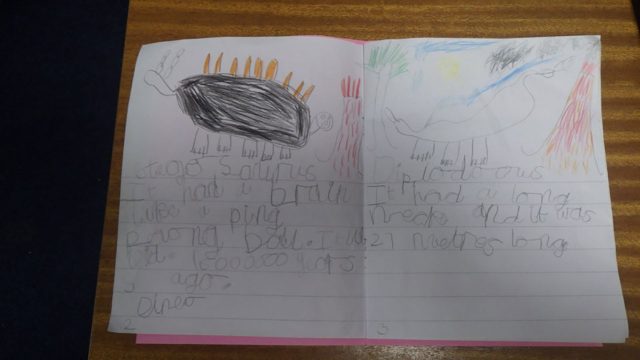 Stego Saurus
It had a brain
like a ping
pong Ball. It
1500000 years
ago.
2
Diplodocus
It had a long
neck and it was
27 metres long
3